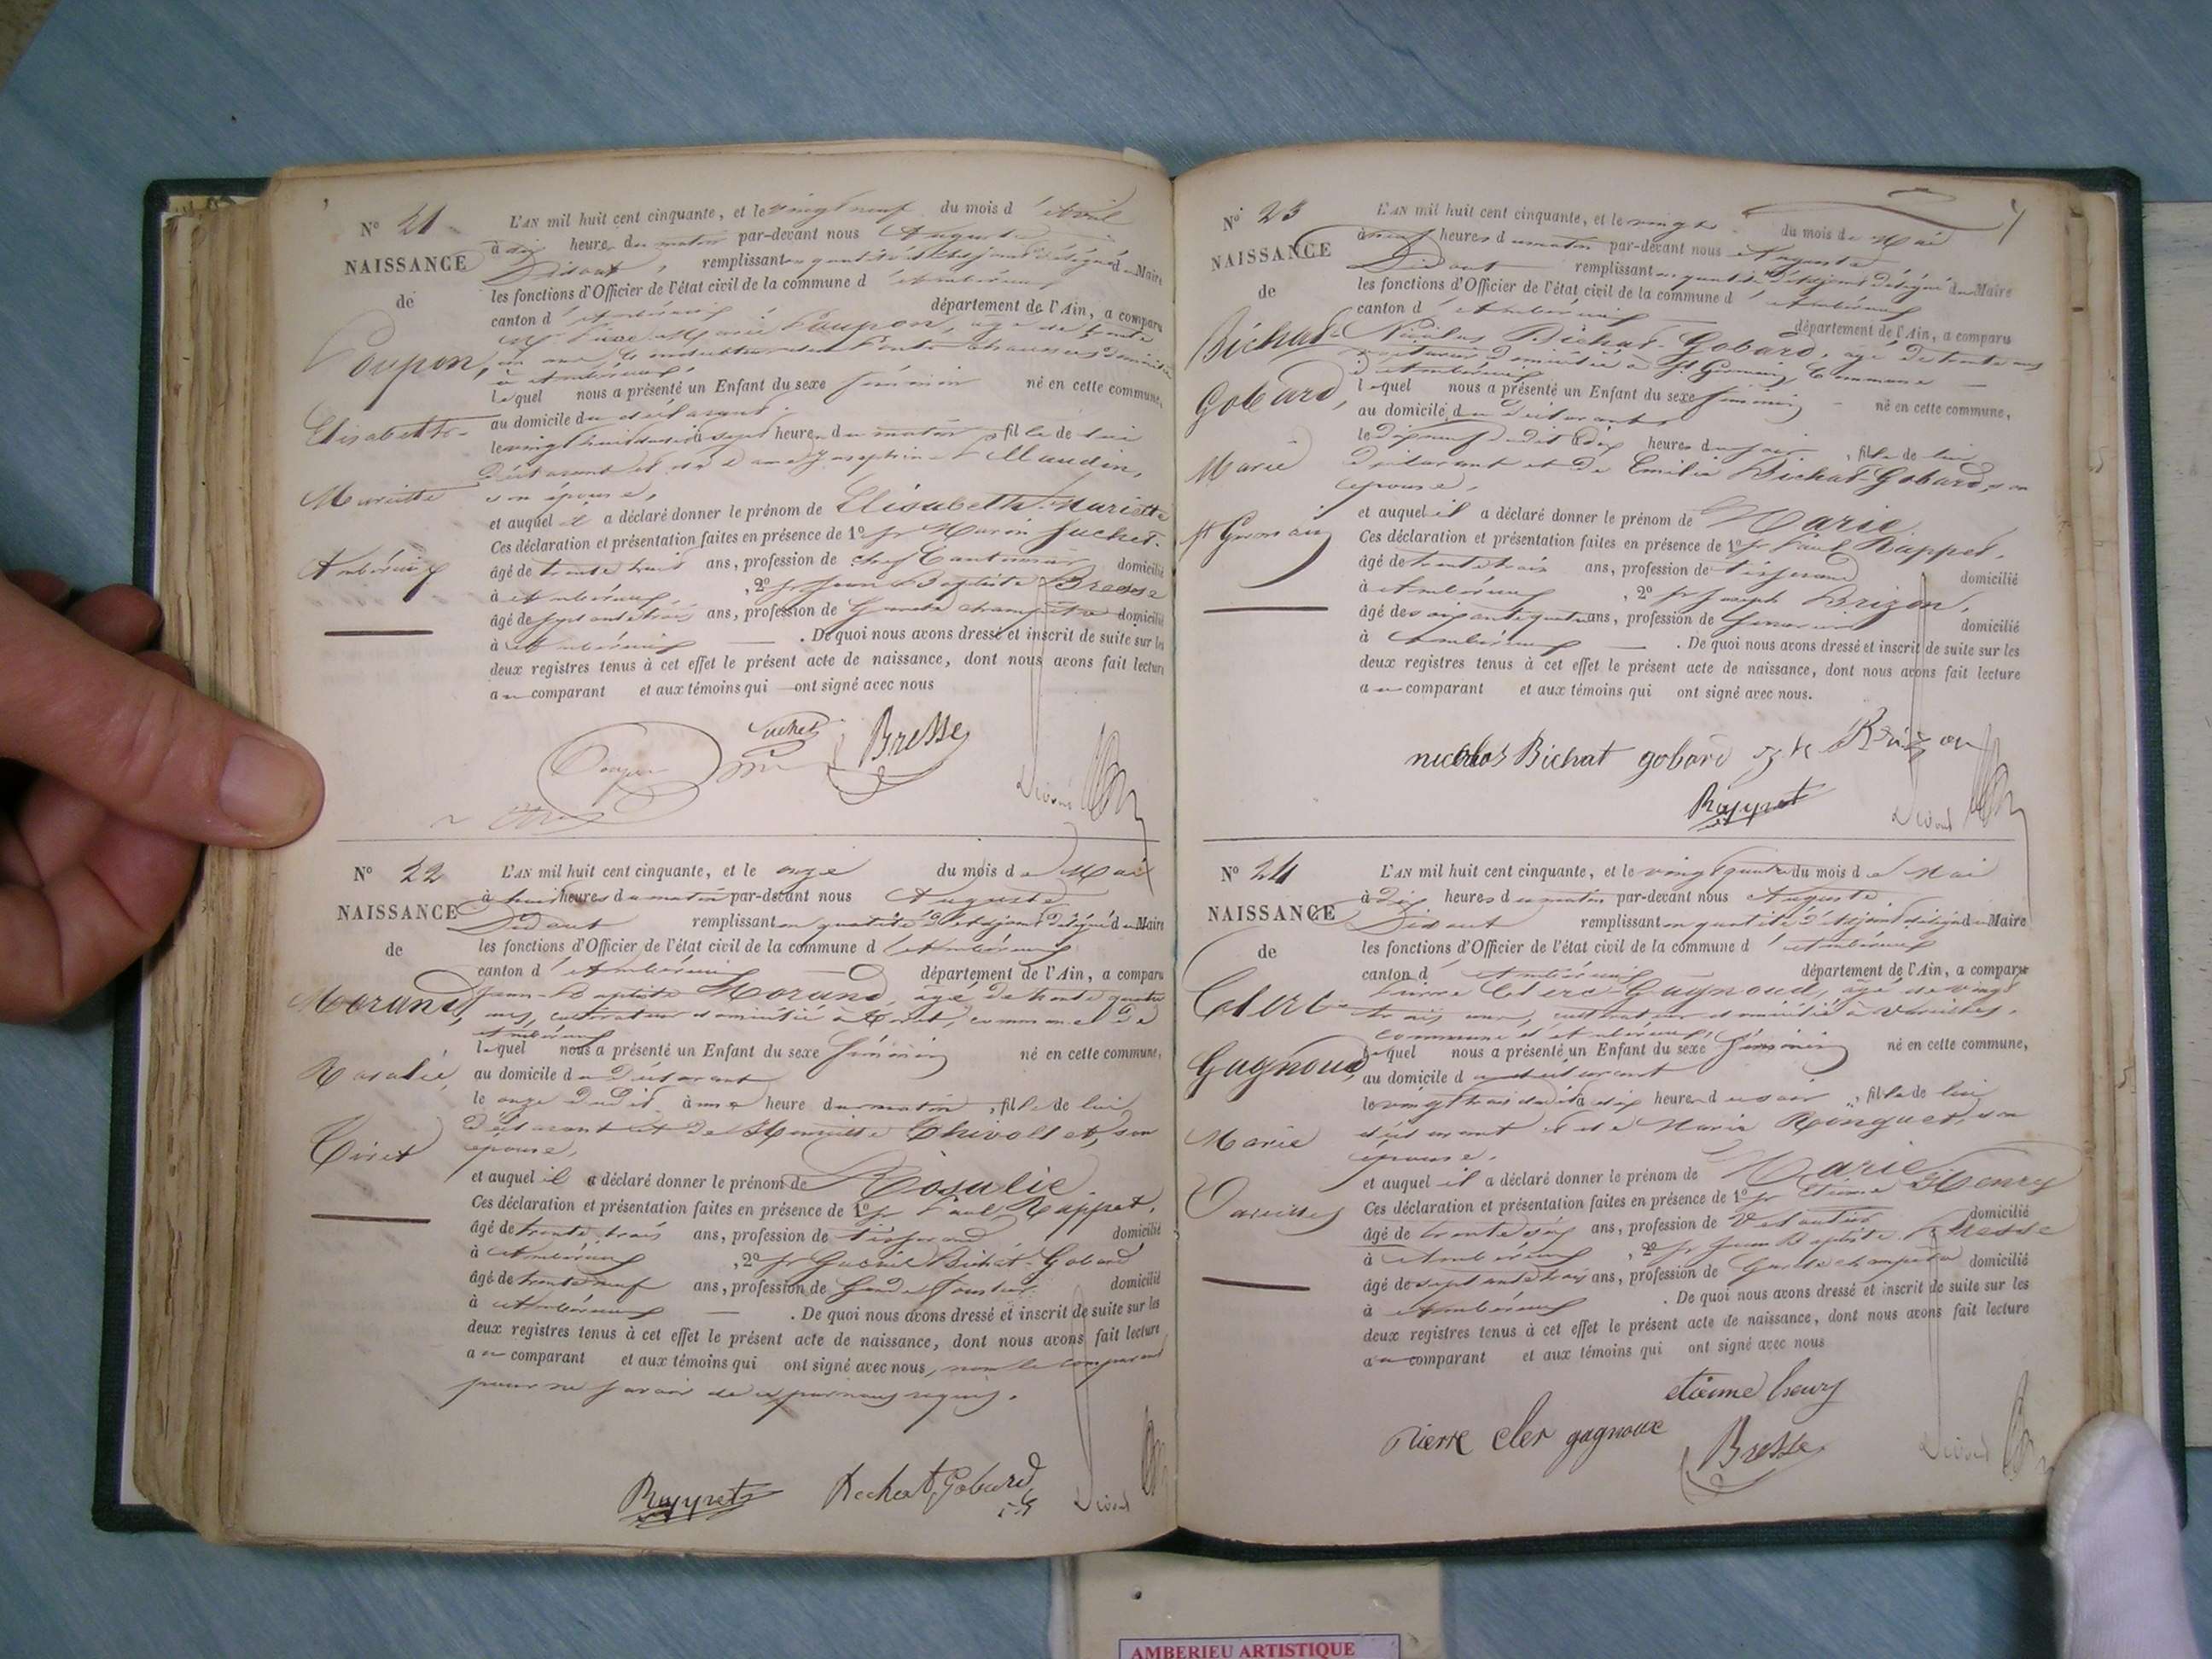 N° 21
NAISSANCE
de
Poupon,
Elisabeth-
Mariette
Ambérieux
L'AN mil huit cent cinquante, et le vingt neuf du mois d'Avril
à dix heures du matin par-devant nous Auguste
Didout, remplissant en qualité d'adjoint délégué du Maire
les fonctions d'Officier de l'état civil de la commune d'Ambérieux
canton d'Ambérieux département de l'Ain, a comparu
Marie Poupon, âgé de trente
un ans, Conducteur des Ponts et chaussées domicilié
à Ambérieux,
lequel nous a présenté un Enfant du sexe féminin né en cette commune,
au domicile du déclarant.
le vingt huit dudit à sept heures du matin, fille de lui
déclarant et de dame Joséphine Maudin,
son épouse,
et auquel il a déclaré donner le prénom de Elisabeth-Mariette
Ces déclaration et présentation faites en présence de 1° sr Marin Juchet.
âgé de trente huit ans, profession de chef Cantonnier domicilié
à Ambérieux, 2° sr Jean Baptiste Bresse
âgé de septante trois ans, profession de Garde champêtre domicilié
à Ambérieux. De quoi nous avons dressé et inscrit de suite sur les
deux registres tenus à cet effet le présent acte de naissance, dont nous avons fait lecture
au comparant et aux témoins qui ont signé avec nous
Poupon Juchet Bresse
Didout
N° 22
NAISSANCE
de
Morand,
Rosalie,
Tiret
L'AN mil huit cent cinquante, et le onze du mois de Mai
à huit heures du matin par-devant nous Auguste
Didout remplissant en qualité d'adjoint délégué du Maire
les fonctions d'Officier de l'état civil de la commune d'Ambérieux
canton d'Ambérieux département de l'Ain, a comparu
Jean-Baptiste Morand, âgé de trente quatre
ans, cultivateur domicilié à Tiret, commune de
Ambérieux
lequel nous a présenté un Enfant du sexe féminin né en cette commune,
au domicile du déclarant
le onze dudit à une heure du matin, fille de lui
déclarant et de Henriette Chivollet, son
épouse,
et auquel il a déclaré donner le prénom de Rosalie.
Ces déclaration et présentation faites en présence de 1° sr Paul Rappet,
âgé de trente trois ans, profession de tisserand domicilié
à Ambérieux, 2° sr Gabriel Bichat-Gobard
âgé de trente neuf ans, profession de Garde forestier domicilié
à Ambérieux. De quoi nous avons dressé et inscrit de suite sur les
deux registres tenus à cet effet le présent acte de naissance, dont nous avons fait lecture
au comparant et aux témoins qui ont signé avec nous, non le comparant
pour ne savoir de ce par nous requis.
Rappet Bechat Gobard
Didout
N° 23
NAISSANCE
de
Bichat-
Gobard,
Marie
St Germain
L'AN mil huit cent cinquante, et le vingt du mois de Mai
à neuf heures du matin par-devant nous Auguste
Didout remplissant en qualité d'adjoint délégué du Maire
les fonctions d'Officier de l'état civil de la commune d'Ambérieux
canton d'Ambérieux département de l'Ain, a comparu
Nicolas Bichat-Gobard, âgé de trente ans
domicilié à St Germain, Commune
d'Ambérieux
lequel nous a présenté un Enfant du sexe féminin né en cette commune,
au domicile du déclarant
le dix neuf dudit à dix heures du soir, fille de lui
déclarant et de Emilie Bichat-Gobard, son
épouse,
et auquel il a déclaré donner le prénom de Marie
Ces déclaration et présentation faites en présence de 1° sr Paul Rappet.
âgé de trente trois ans, profession de tisserand domicilié
à Ambérieux, 2° sr Joseph Brizon,
âgé de soixante quatre ans, profession de domicilié
à Ambérieux. De quoi nous avons dressé et inscrit de suite sur les
deux registres tenus à cet effet le présent acte de naissance, dont nous avons fait lecture
au comparant et aux témoins qui ont signé avec nous.
nicolas Bichat gobard Brizon
Rappet
Didout
N° 24
NAISSANCE
de
Clerc-
Gagnoud,
Marie
Vareilles
L'AN mil huit cent cinquante, et le vingt quatre du mois de Mai
à dix heures du matin par-devant nous Auguste
Didout remplissant en qualité d'adjoint délégué du Maire
les fonctions d'Officier de l'état civil de la commune d'Ambérieux
canton d'Ambérieux département de l'Ain, a comparu
Pierre Clerc-Gagnoud, âgé de vingt
trois ans, cultivateur domicilié à Vareilles,
commune d'Ambérieux,
lequel nous a présenté un Enfant du sexe féminin né en cette commune,
au domicile du déclarant
le vingt trois dudit à dix heures du soir, fille de lui
déclarant et de Marie Ringuet, son
épouse.
et auquel il a déclaré donner le prénom de Marie
Ces déclaration et présentation faites en présence de 1° sr Etienne Henry
âgé de trente six ans, profession de domicilié
à Ambérieux, 2° sr Jean Baptiste Bresse
âgé de septante trois ans, profession de Garde champêtre domicilié
à Ambérieux. De quoi nous avons dressé et inscrit de suite sur les
deux registres tenus à cet effet le présent acte de naissance, dont nous avons fait lecture
au comparant et aux témoins qui ont signé avec nous
etienne henry
Pierre cler gagnoux Bresse
Didout
AMBERIEU ARTISTIQUE